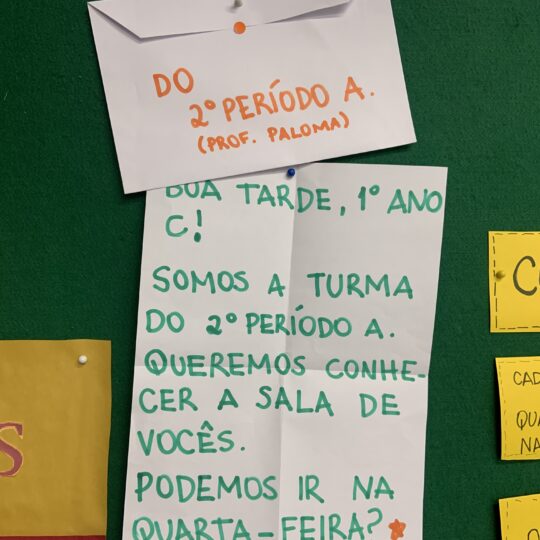 DO
2º PERÍODO A.
(PROF. PALOMA)
BOA TARDE, 1º ANO
C!
SOMOS A TURMA
DO 2º PERÍODO A.
QUEREMOS CONHE-
CER A SALA DE
VOCÊS.
PODEMOS IR NA
QUARTA-FEIRA?
S
CAD
QUA
NA